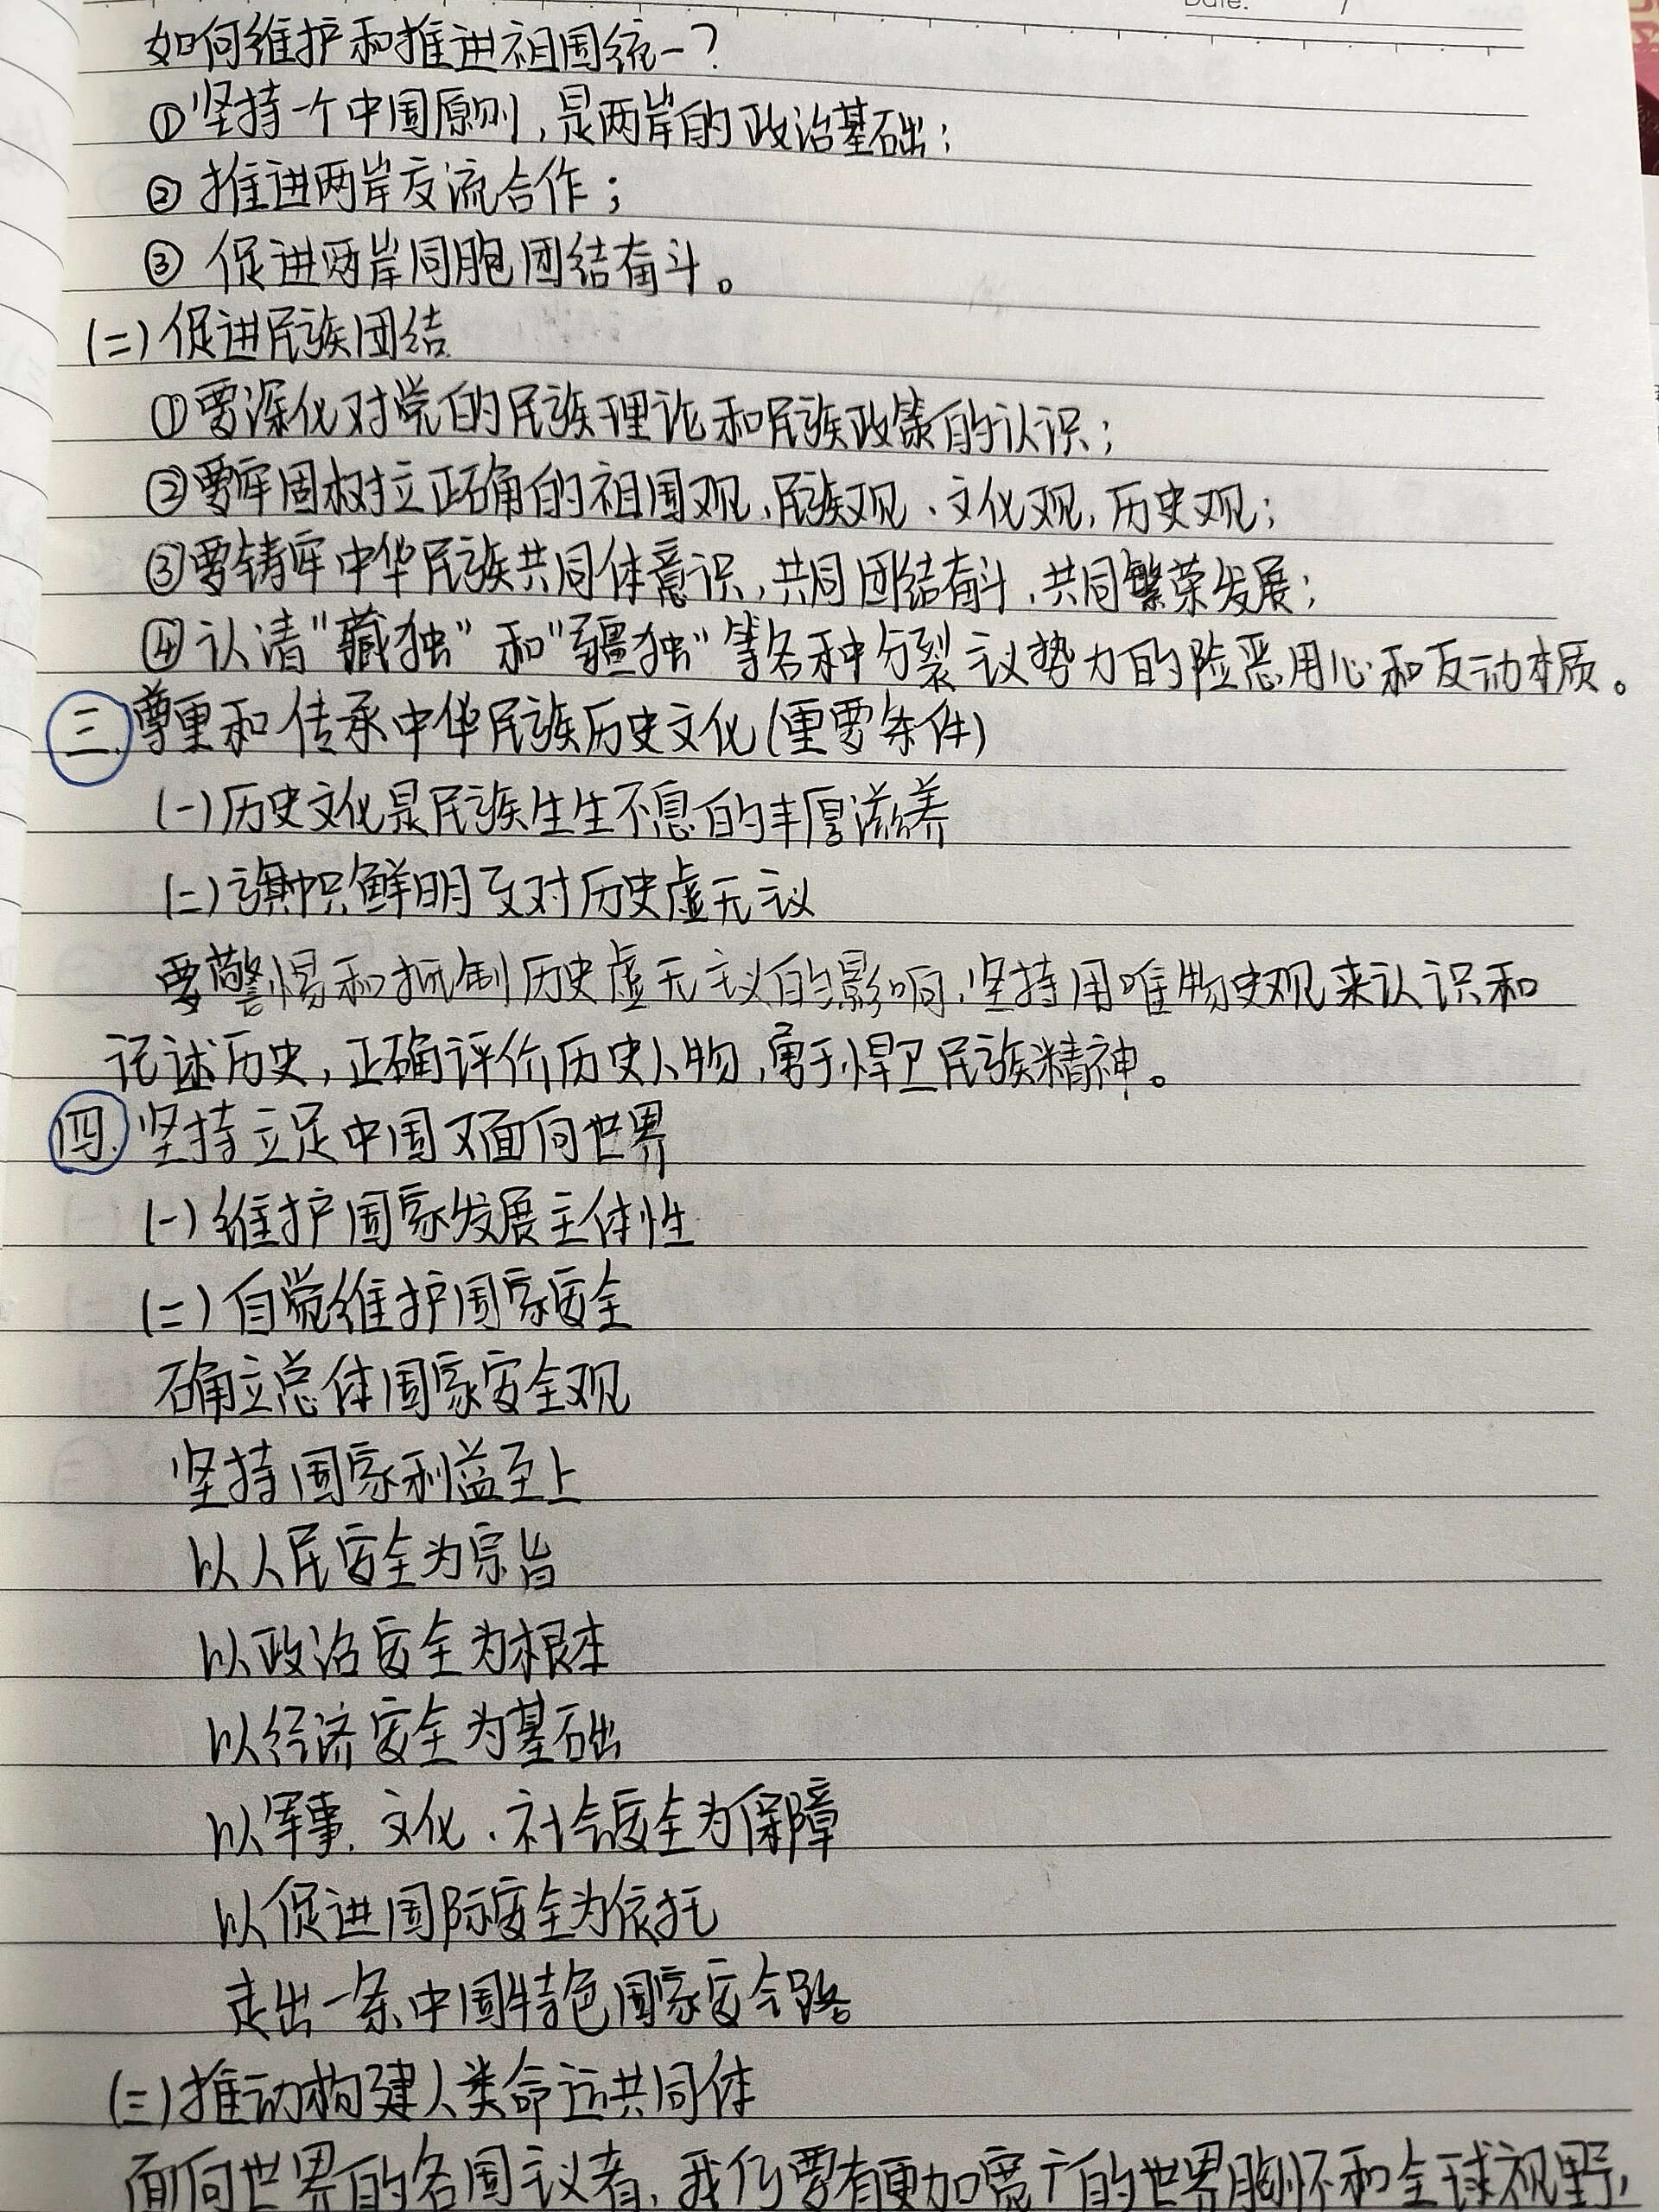 Date.
如何维护和推进祖国统一?
①坚持一个中国原则,是两岸的政治基础;
②推进两岸交流合作;
③促进两岸同胞团结奋斗。
(二)促进民族团结
①要深化对党的民族理论和民族政策的认识;
②要牢固树立正确的祖国观、民族观、文化观,历史观;
③要铸牢中华民族共同体意识,共同团结奋斗,共同繁荣发展;
④认清“藏独”和“疆独”等各种分裂主义势力的险恶用心和反动本质。
三.尊重和传承中华民族历史文化(重要条件)
(一)历史文化是民族生生不息的丰厚滋养
(二)旗帜鲜明反对历史虚无主义
要警惕和抵制历史虚无主义的影响,坚持用唯物史观来认识和
记述历史,正确评价历史人物,勇于悍卫民族精神。
四.坚持立足中国又面向世界
(一)维护国家发展主体性
(二)自觉维护国家安全
确立总体国家安全观
坚持国家利益至上
以人民安全为宗旨
以政治安全为根本
以经济安全为基础
以军事.文化、社会安全为保障
以促进国际安全为依托
走出一条中国特色国家安全路
(三)推动构建人类命运共同体
面向世界的各国主义者,我们要有更加宽广的世界胸怀和全球视野,